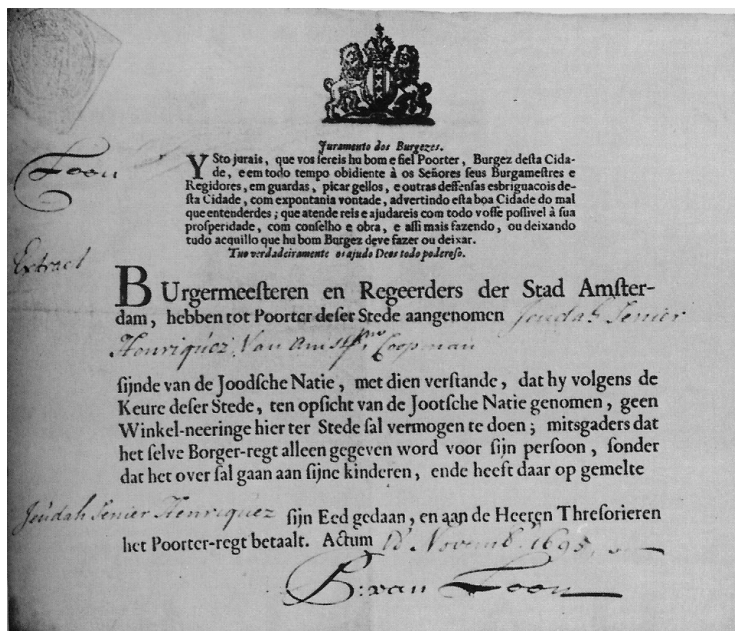 Juramento dos Burgezes.
YSto jurais, que vos sereis hu bom e fiel Poorter, Burgez desta Cida-
de, e em todo tempo obidiente à os Señores seus Burgamestres e
Regidores, em guardas, picar gellos, e outras deffensas esbriguacois de-
sta Cidade, com expontania vontade, advertindo esta boa Cidade do mal
que entenderdes; que atende reis e ajudareis com todo vosse possivel à sua
prosperidade, com conselho e obra, e assi mais fazendo, ou deixando
tudo acquillo que hu bom Burgez deve fazer ou deixar.
Tuo verdadeiramente os ajudo Deos todo poderoso.
Extract
BUrgermeesteren en Regeerders der Stad Amster-
dam, hebben tot Poorter deser Stede aangenomen Jeudah Senier
Henriquez Van Amst Coopman
sijnde van de Joodsche Natie, met dien verstande, dat hy volgens de
Keure deser Stede, ten opsicht van de Jootsche Natie genomen, geen
Winkel-neeringe hier ter Stede sal vermogen te doen; mitsgaders dat
het selve Borger-regt alleen gegeven word voor sijn persoon, sonder
dat het over sal gaan aan sijne kinderen, ende heeft daar op gemelte
Jeudah Senier Henriquez sijn Eed gedaan, en aan de Heeren Thresorieren
het Poorter-regt betaalt. Actum Novemb. 1695
B. van Loon